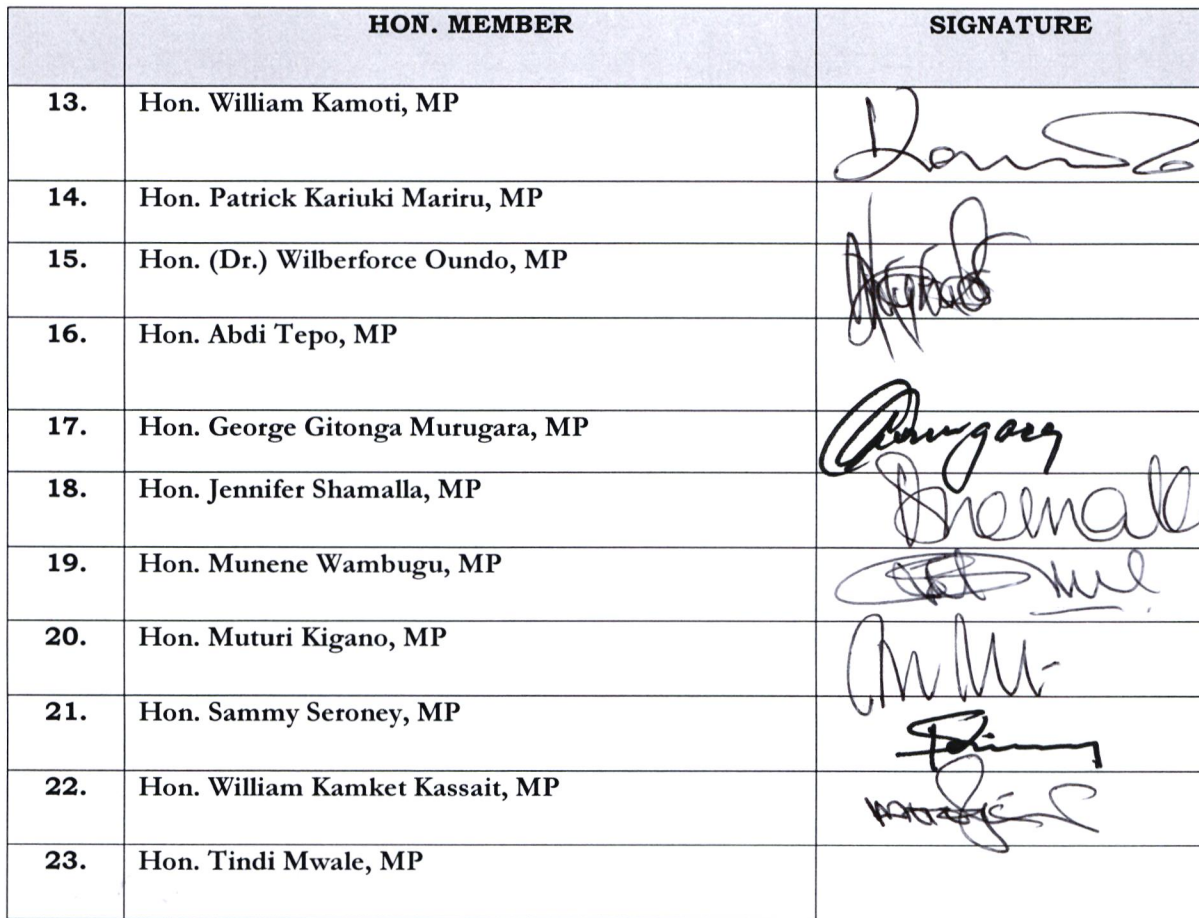 HON. MEMBER SIGNATURE
13. Hon. William Kamoti, MP
14. Hon. Patrick Kariuki Mariru, MP
15. Hon. (Dr.) Wilberforce Oundo, MP
16. Hon. Abdi Tepo, MP
17. Hon. George Gitonga Murugara, MP
18. Hon. Jennifer Shamalla, MP
19. Hon. Munene Wambugu, MP
20. Hon. Muturi Kigano, MP
21. Hon. Sammy Seroney, MP
22. Hon. William Kamket Kassait, MP
23. Hon. Tindi Mwale, MP